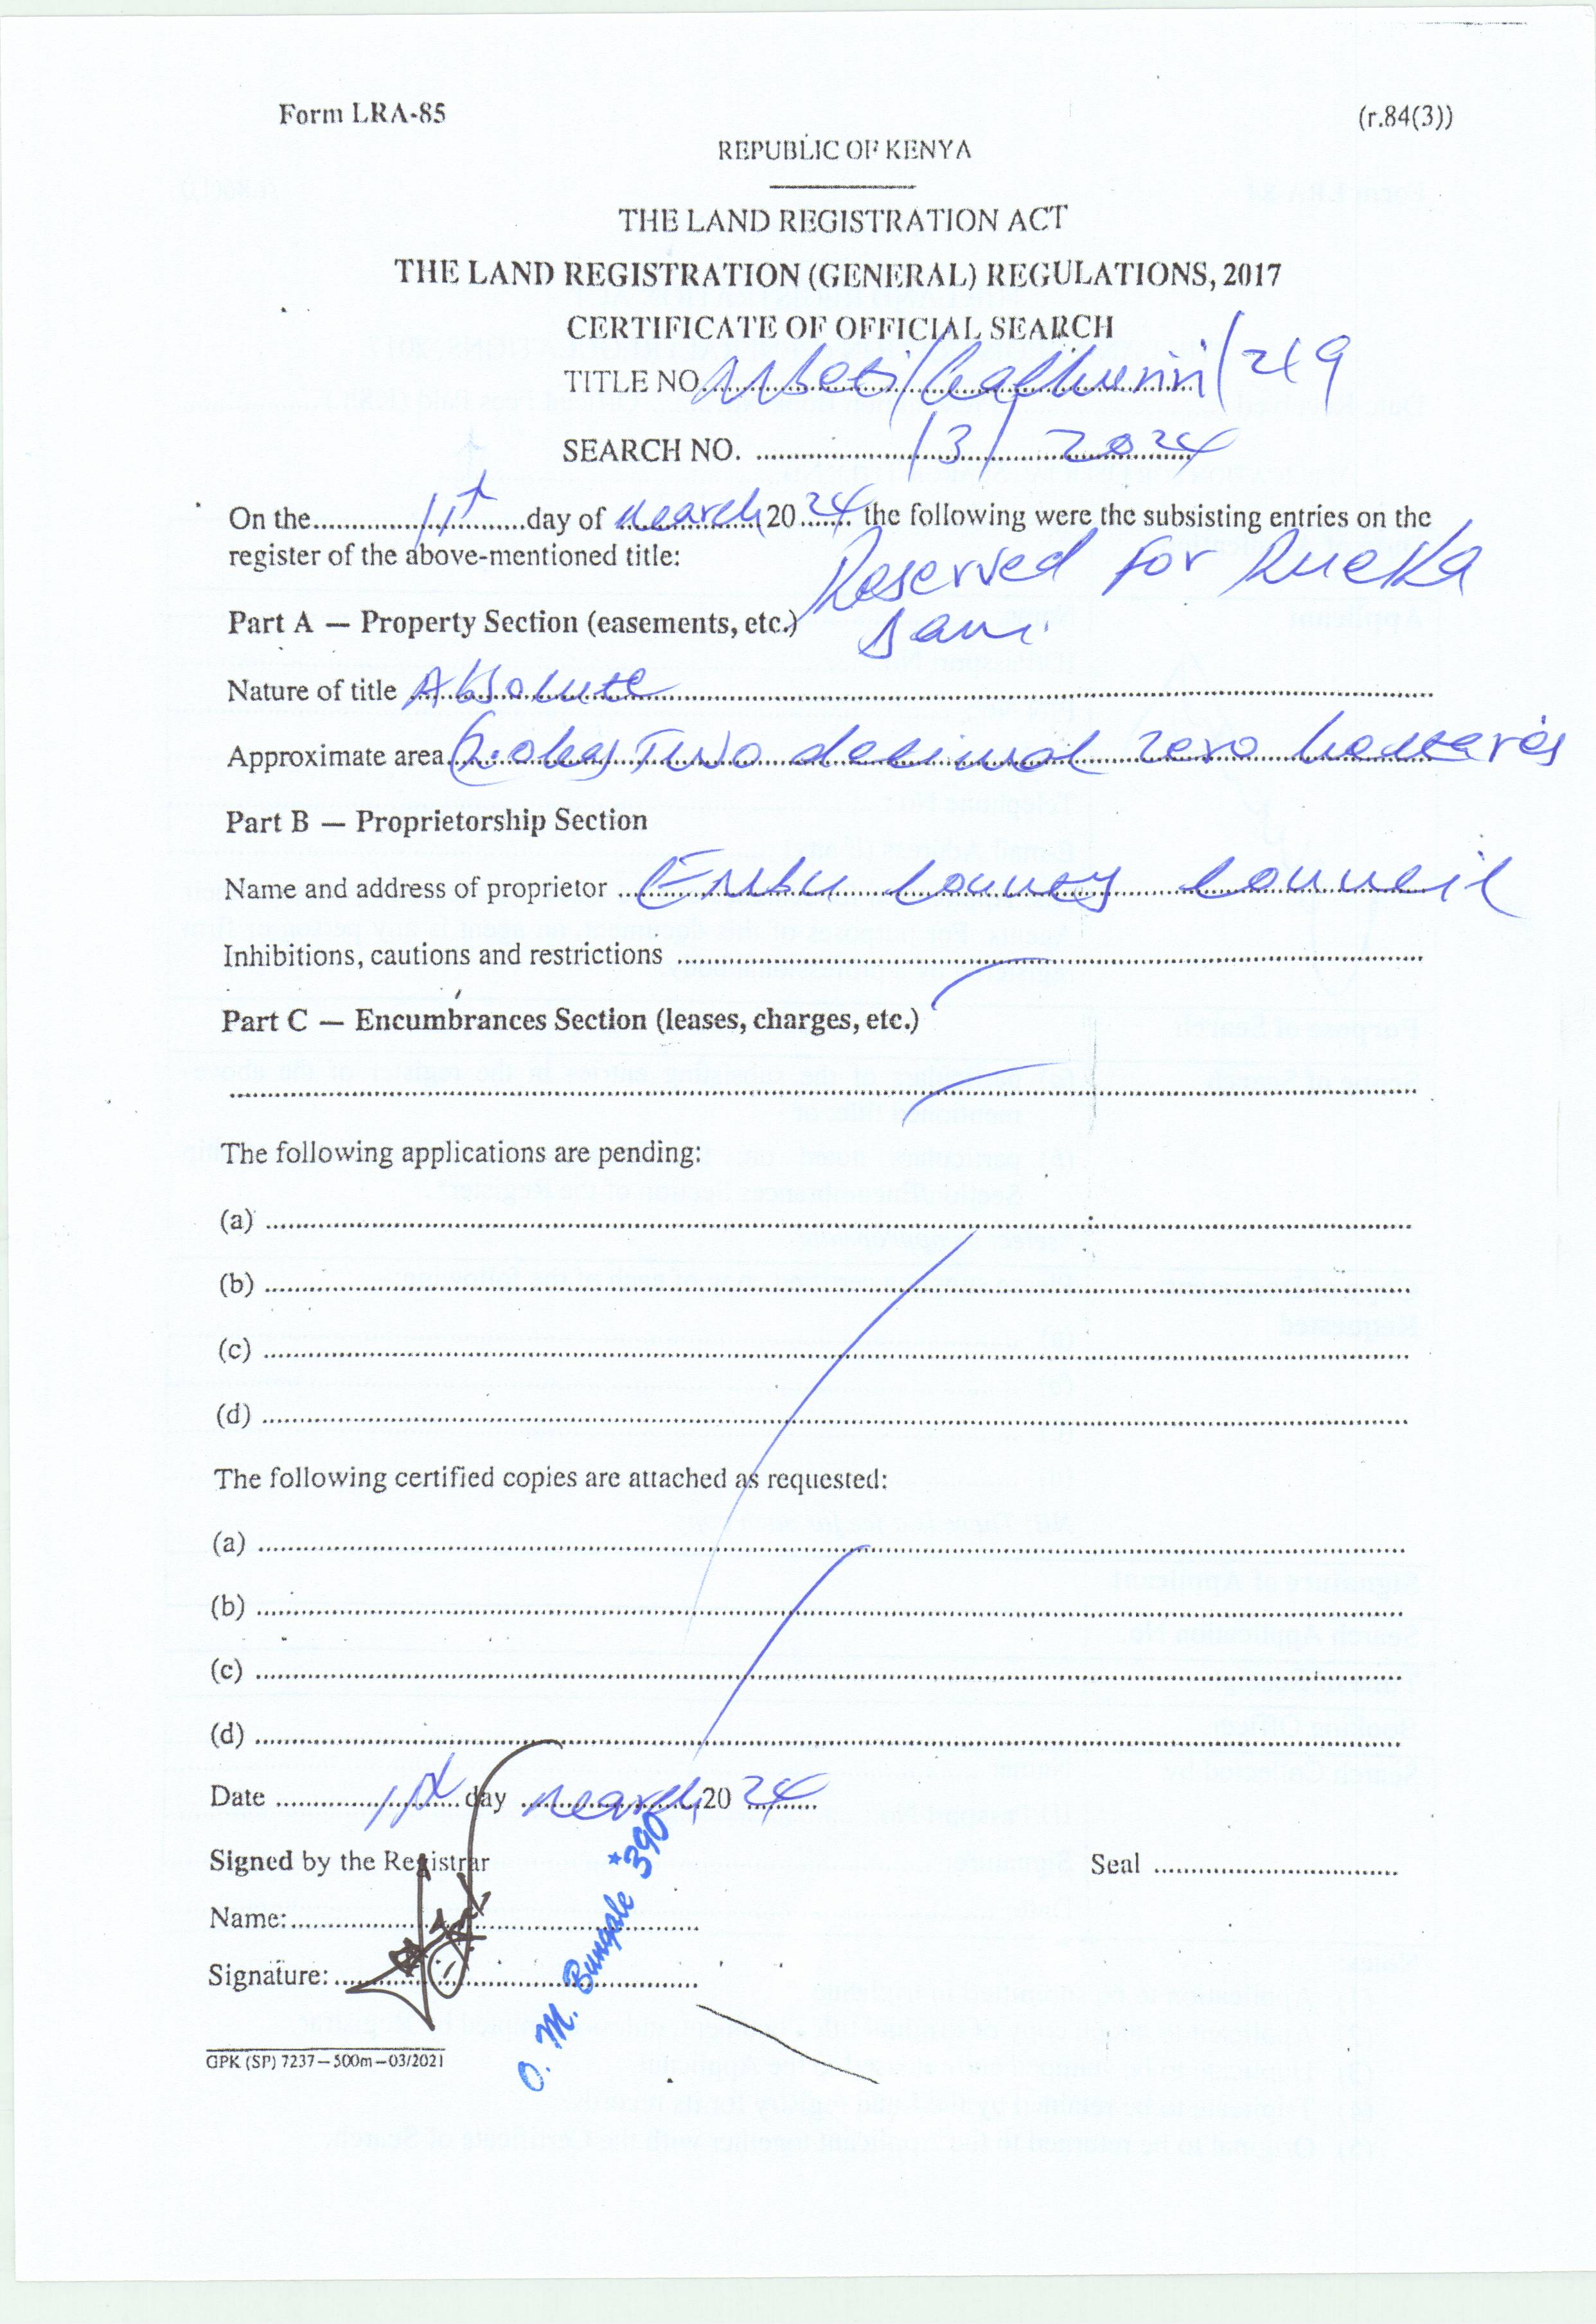 Form LRA-85
(r.84(3))
REPUBLIC OF KENYA
THE LAND REGISTRATION ACT
THE LAND REGISTRATION (GENERAL) REGULATIONS, 2017
CERTIFICATE OF OFFICIAL SEARCH
TITLE NO. Mbeti/Gachuriri/249
SEARCH NO. /3/ 2024
On the 11th day of March 20 24 the following were the subsisting entries on the
register of the above-mentioned title:
Reserved for
Part A — Property Section (easements, etc.) Dam.
Nature of title Absolute
Approximate area Two decimal zero hectares
Part B — Proprietorship Section
Name and address of proprietor Embu County Council
Inhibitions, cautions and restrictions
Part C — Encumbrances Section (leases, charges, etc.)
The following applications are pending:
(a)
(b)
(c)
(d)
The following certified copies are attached as requested:
(a)
(b)
(c)
(d)
Date 11th day March 20 24
Signed by the Registrar
Seal
Name:
Signature:
O. M. Bungale *390
GPK (SP) 7237—500m—03/2021